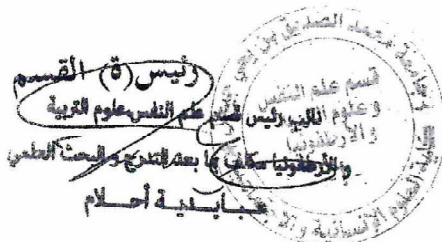 رئيس(ة) القسم
نائب رئيس قسم علم النفس علوم التربية
والأرطفونيا مكلف بما بعد التدرج و البحث العلمي
أحلام
جامعة محمد الصديق بن يحي
قسم علم النفس
و علوم
و الأرطفونيا
كلية العلوم الإنسانية و